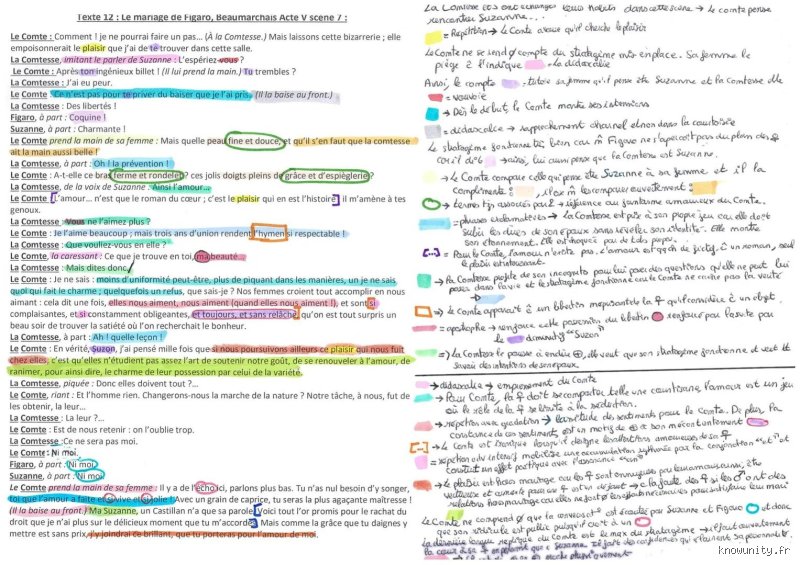 Texte 12 : Le mariage de Figaro, Beaumarchais Acte V scene 7 :
Le Comte : Comment ! je ne pourrai faire un pas… (À la Comtesse.) Mais laissons cette bizarrerie ; elle
empoisonnerait le plaisir que j'ai de te trouver dans cette salle.
La Comtesse, imitant le parler de Suzanne : L'espériez-vous ?
Le Comte : Après ton ingénieux billet ! (Il lui prend la main.) Tu trembles ?
La Comtesse : J'ai eu peur.
Le Comte : Ce n'est pas pour te priver du baiser que je l'ai pris. (Il la baise au front.)
La Comtesse : Des libertés !
Figaro, à part : Coquine !
Suzanne, à part : Charmante !
Le Comte prend la main de sa femme : Mais quelle peau fine et douce, et qu'il s'en faut que la comtesse
ait la main aussi belle !
La Comtesse, à part : Oh ! la prévention !
Le Comte : A-t-elle ce bras ferme et rondelet ? ces jolis doigts pleins de grâce et d'espièglerie ?
La Comtesse, de la voix de Suzanne : Ainsi l'amour…
Le Comte : L'amour… n'est que le roman du cœur ; c'est le plaisir qui en est l'histoire ; il m'amène à tes
genoux.
La Comtesse : Vous ne l'aimez plus ?
Le Comte : Je l'aime beaucoup ; mais trois ans d'union rendent l'hymen si respectable !
La Comtesse : Que vouliez-vous en elle ?
Le Comte, la caressant : Ce que je trouve en toi, ma beauté…
La Comtesse : Mais dites donc.
Le Comte : Je ne sais : moins d'uniformité peut-être, plus de piquant dans les manières, un je ne sais
quoi qui fait le charme ; quelquefois un refus, que sais-je ? Nos femmes croient tout accomplir en nous
aimant : cela dit une fois, elles nous aiment, nous aiment (quand elles nous aiment !), et sont si
complaisantes, et si constamment obligeantes, et toujours, et sans relâche, qu'on est tout surpris un
beau soir de trouver la satiété où l'on recherchait le bonheur.
La Comtesse, à part : Ah ! quelle leçon !
Le Comte : En vérité, Suzon, j'ai pensé mille fois que si nous poursuivons ailleurs ce plaisir qui nous fuit
chez elles, c'est qu'elles n'étudient pas assez l'art de soutenir notre goût, de se renouveler à l'amour, de
ranimer, pour ainsi dire, le charme de leur possession par celui de la variété.
La Comtesse, piquée : Donc elles doivent tout ?…
Le Comte, riant : Et l'homme rien. Changerons-nous la marche de la nature ? Notre tâche, à nous, fut de
les obtenir, la leur…
La Comtesse : La leur ?…
Le Comte : Est de nous retenir : on l'oublie trop.
La Comtesse : Ce ne sera pas moi.
Le Comte : Ni moi.
Figaro, à part : Ni moi.
Suzanne, à part : Ni moi.
Le Comte prend la main de sa femme : Il y a de l'écho ici, parlons plus bas. Tu n'as nul besoin d'y songer,
toi que l'amour a faite et si vive et si jolie ! Avec un grain de caprice, tu seras la plus agaçante maîtresse !
(Il la baise au front.) Ma Suzanne, un Castillan n'a que sa parole. Voici tout l'or promis pour le rachat du
droit que je n'ai plus sur le délicieux moment que tu m'accordes. Mais comme la grâce que tu daignes y
mettre est sans prix, j'y joindrai ce brillant, que tu porteras pour l'amour de moi.
La Comtesse ont échangé leur habits dans cette scène → le comte pense
rencontrer Suzanne...
= Répétition → Le Comte avoue qu'il cherche le plaisir
Le Comte ne se rend pas compte du stratagème mis en place. Sa femme le
piège à l'indique → la didascalie
Aussi, le compte tutoie sa femme qu'il pense être Suzanne et la Comtesse elle
= vouvoie
→ Dès le début, le Comte montre ses intentions
= didascalie → rapprochement charnel et non dans la courtoisie
Le stratagème fonctionne très bien car m̂ Figaro ne s'aperçoit pas du plan des ♀
car il dit → ainsi, lui aussi pense que la Comtesse est Suzanne.
= le Comte compare celle qui pense être Suzanne à sa femme et il la
complimente : , il ose m̂ les comparer ouvertement :
→ termes tjs associés par 2 → référence au fantasme amoureux du Comte.
= phrases exclamatives → la Comtesse est prise à son propre jeu car elle doit
subir les dires de son époux sans révéler son identité. Elle montre
son étonnement. Elle est choquée par de tels propos.
[...] = Pour le Comte, l'amour n'existe pas. L'amour est qqch de fictif, à un roman, seul
le plaisir est intéressant.
→ la Comtesse profite de son incognito pour lui poser des questions qu'elle ne peut lui
poser dans la vie et le stratagème fonctionne car le Comte ne cache pas la vérité
= le Comte apparaît à un libertin
= apostrophe → renforce cette possession du libertin
le diminutif "Suzon"
=) la Comtesse le pousse à endire ⊕, elle veut que son stratagème fonctionne et veut
savoir des intentions de son époux.
→ didascalie → empressement du Comte
→ Pour Comte, la ♀ doit se comporter telle une courtisane, l'amour est un jeu
où le rôle de la ♀ se limite à la séduction.
→ répétition avec gradation → lassitude des sentiments pour le Comte. De plus, la
constance de ces sentiments, est un motif de ⊕ à son mécontentement
[...] → le Comte est ironique lorsqu'il désigne les relations amoureuses de sa ♀
= répétition adv intensif mobilise une accumulation rythmée par la conjonction "et" et
construit un effet poétique avec l'assonance "an"
Le Comte ne comprend ⌀ que la conversat° est écoutée par Suzanne et Figaro et donc
que son ridicule est public puisqu'il croit à un
La dernière longue réplique du Comte est le max du stratagème → il fait ouvertement
la cour à sa ♀
knowunity.fr